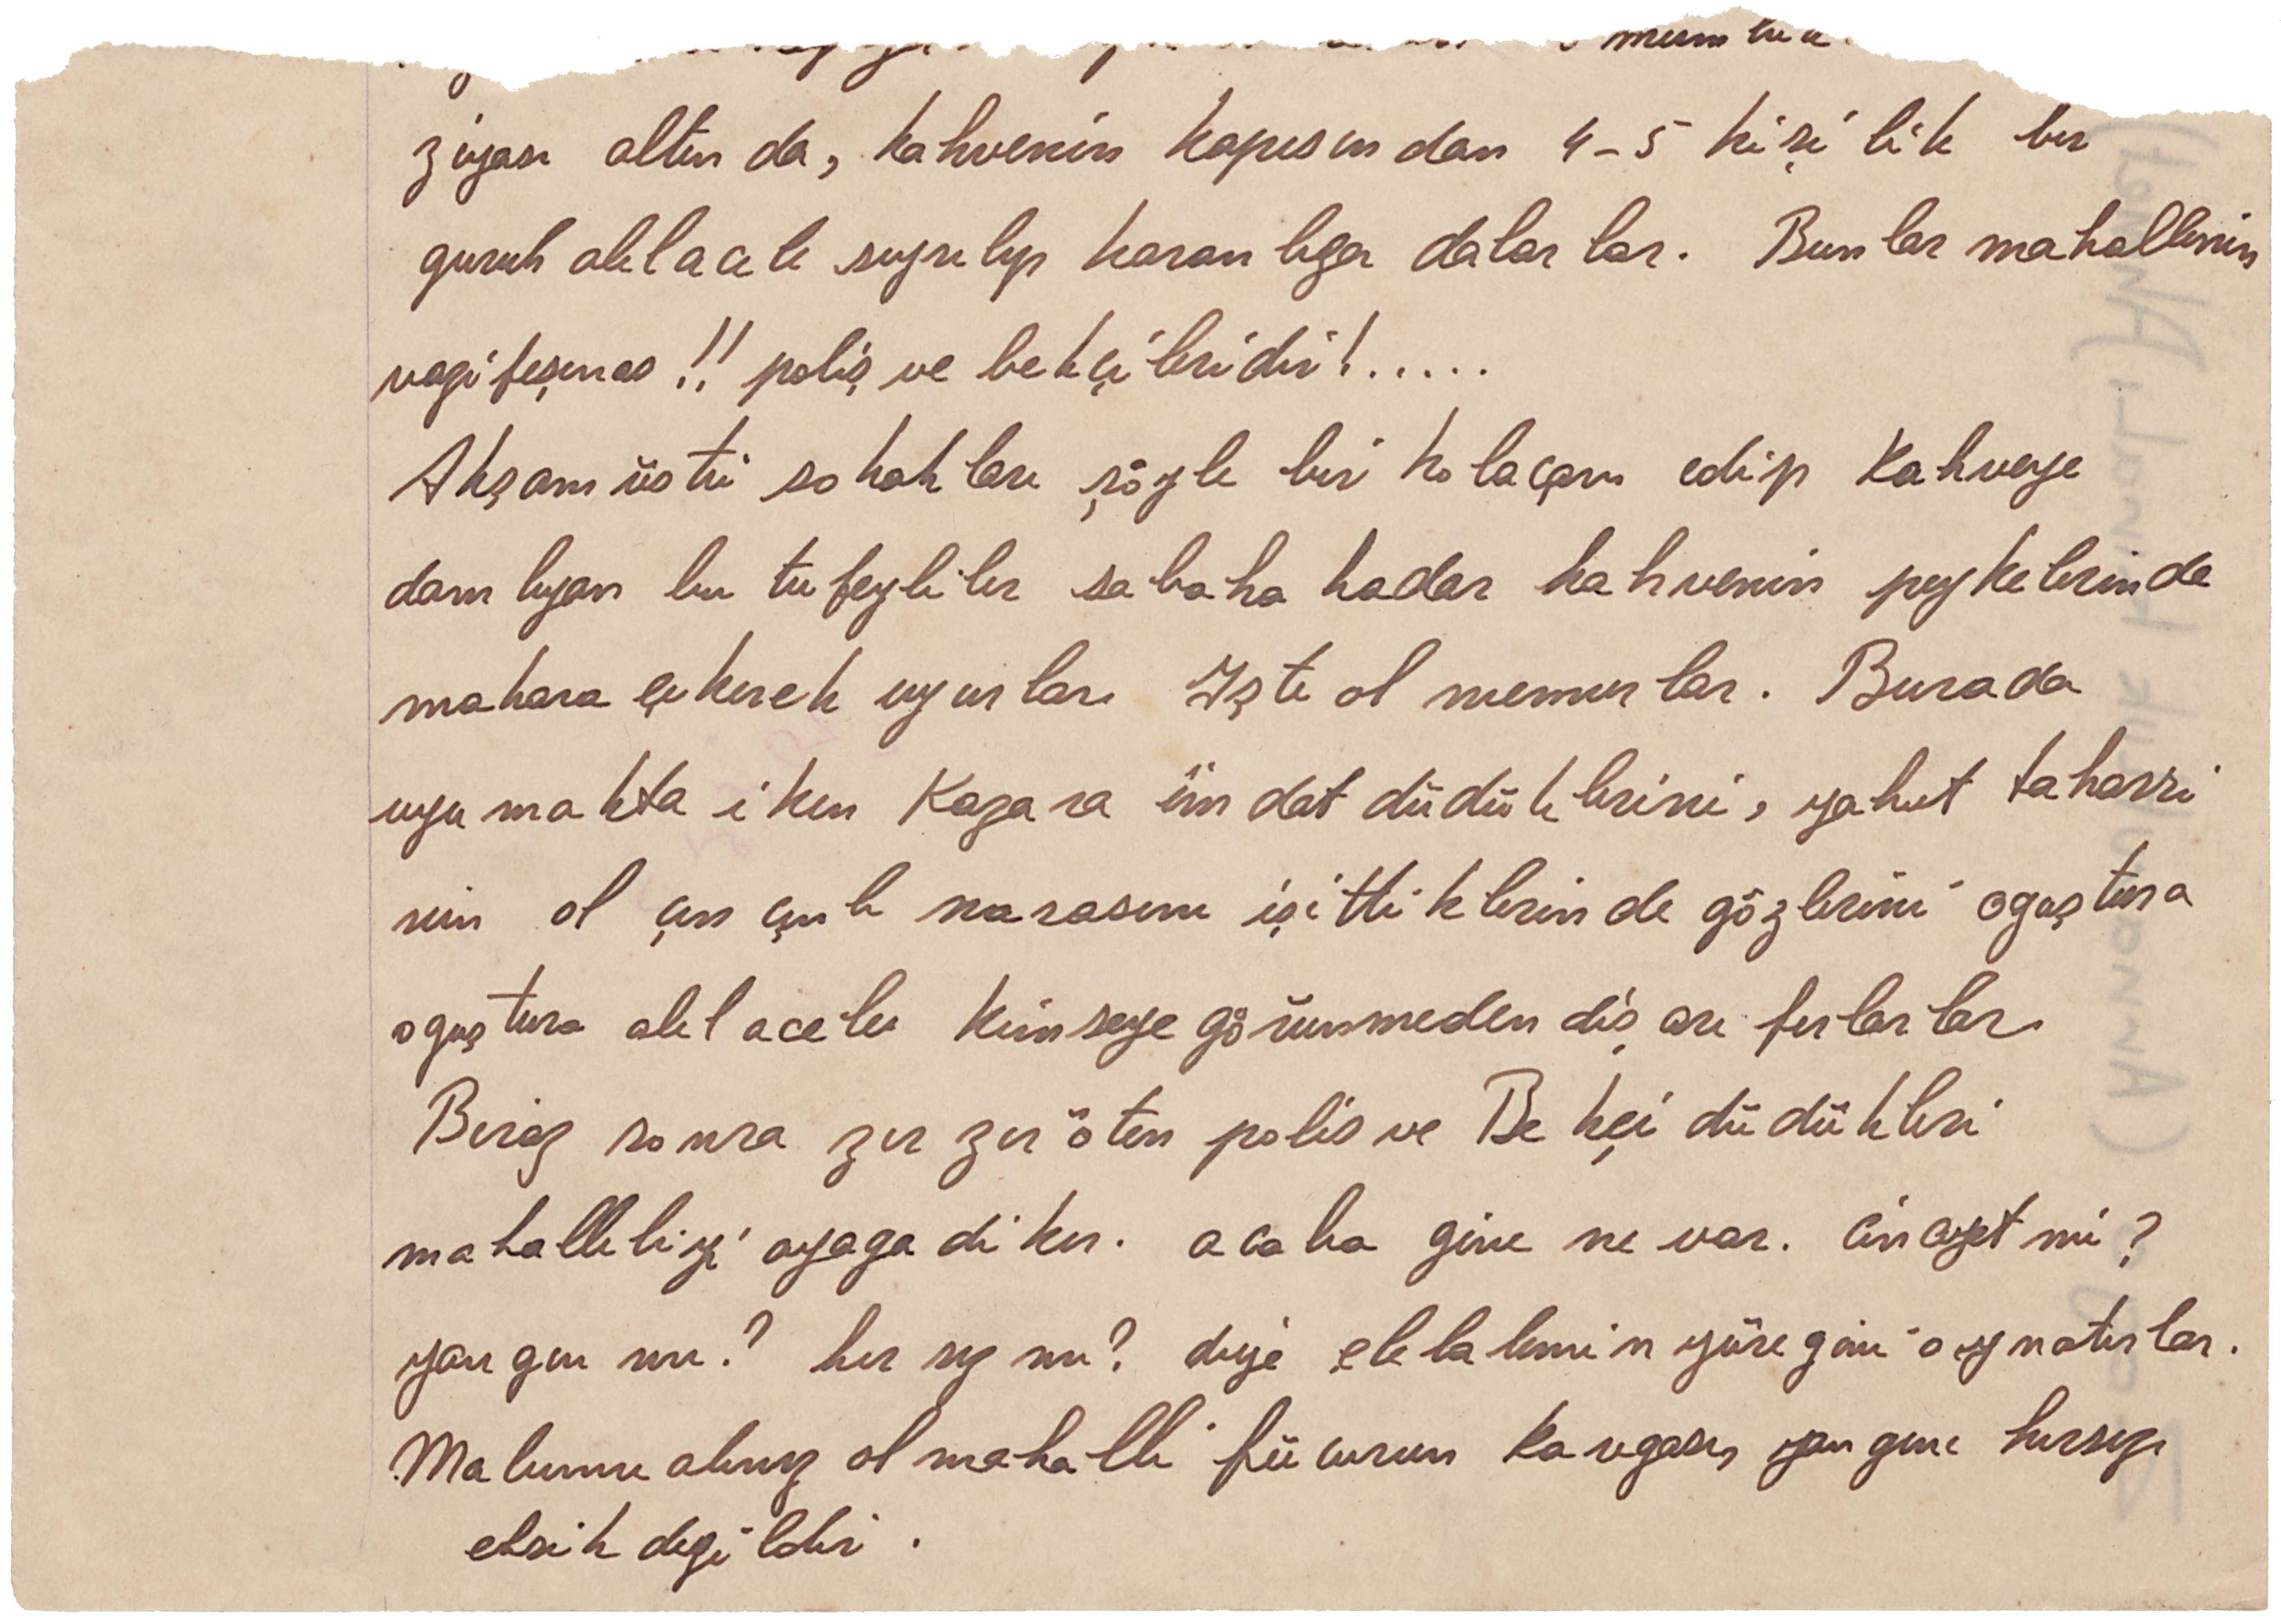 ziyası altında, kahvenin kapısından 4-5 kişilik bir
guruh alelacele sıyrılıp karanlığa dalarlar. Bunlar mahallenin
vazifeşinas!! polis ve bekçileridir!.....
Akşam üstü sokakları şöyle bir kolaçan edip Kahveye
damlıyan bu tufeyliler sabaha kadar kahvenin peykelerinde
makara çekerek uyurlar. İşte ol memurlar. Burada
uyumakta iken Kazara imdat düdüklerini, yahut taharri
nin ol çın çınlı narasını işittiklerinde gözlerini oguştura
oguştura alelacele kimseye görünmeden dışarı fırlarlar.
Biraz sonra zır zır öten polis ve Bekçi düdükleri
mahalleliyi ayaga diker. acaba gine ne var. cinayet mi?
yangın mı? hırsız mı? diye elelalemin yüregini oynatırlar.
Malumu aliniz ol mahalle fücurun kavgası, yangını hırsızı
eksik degildir.